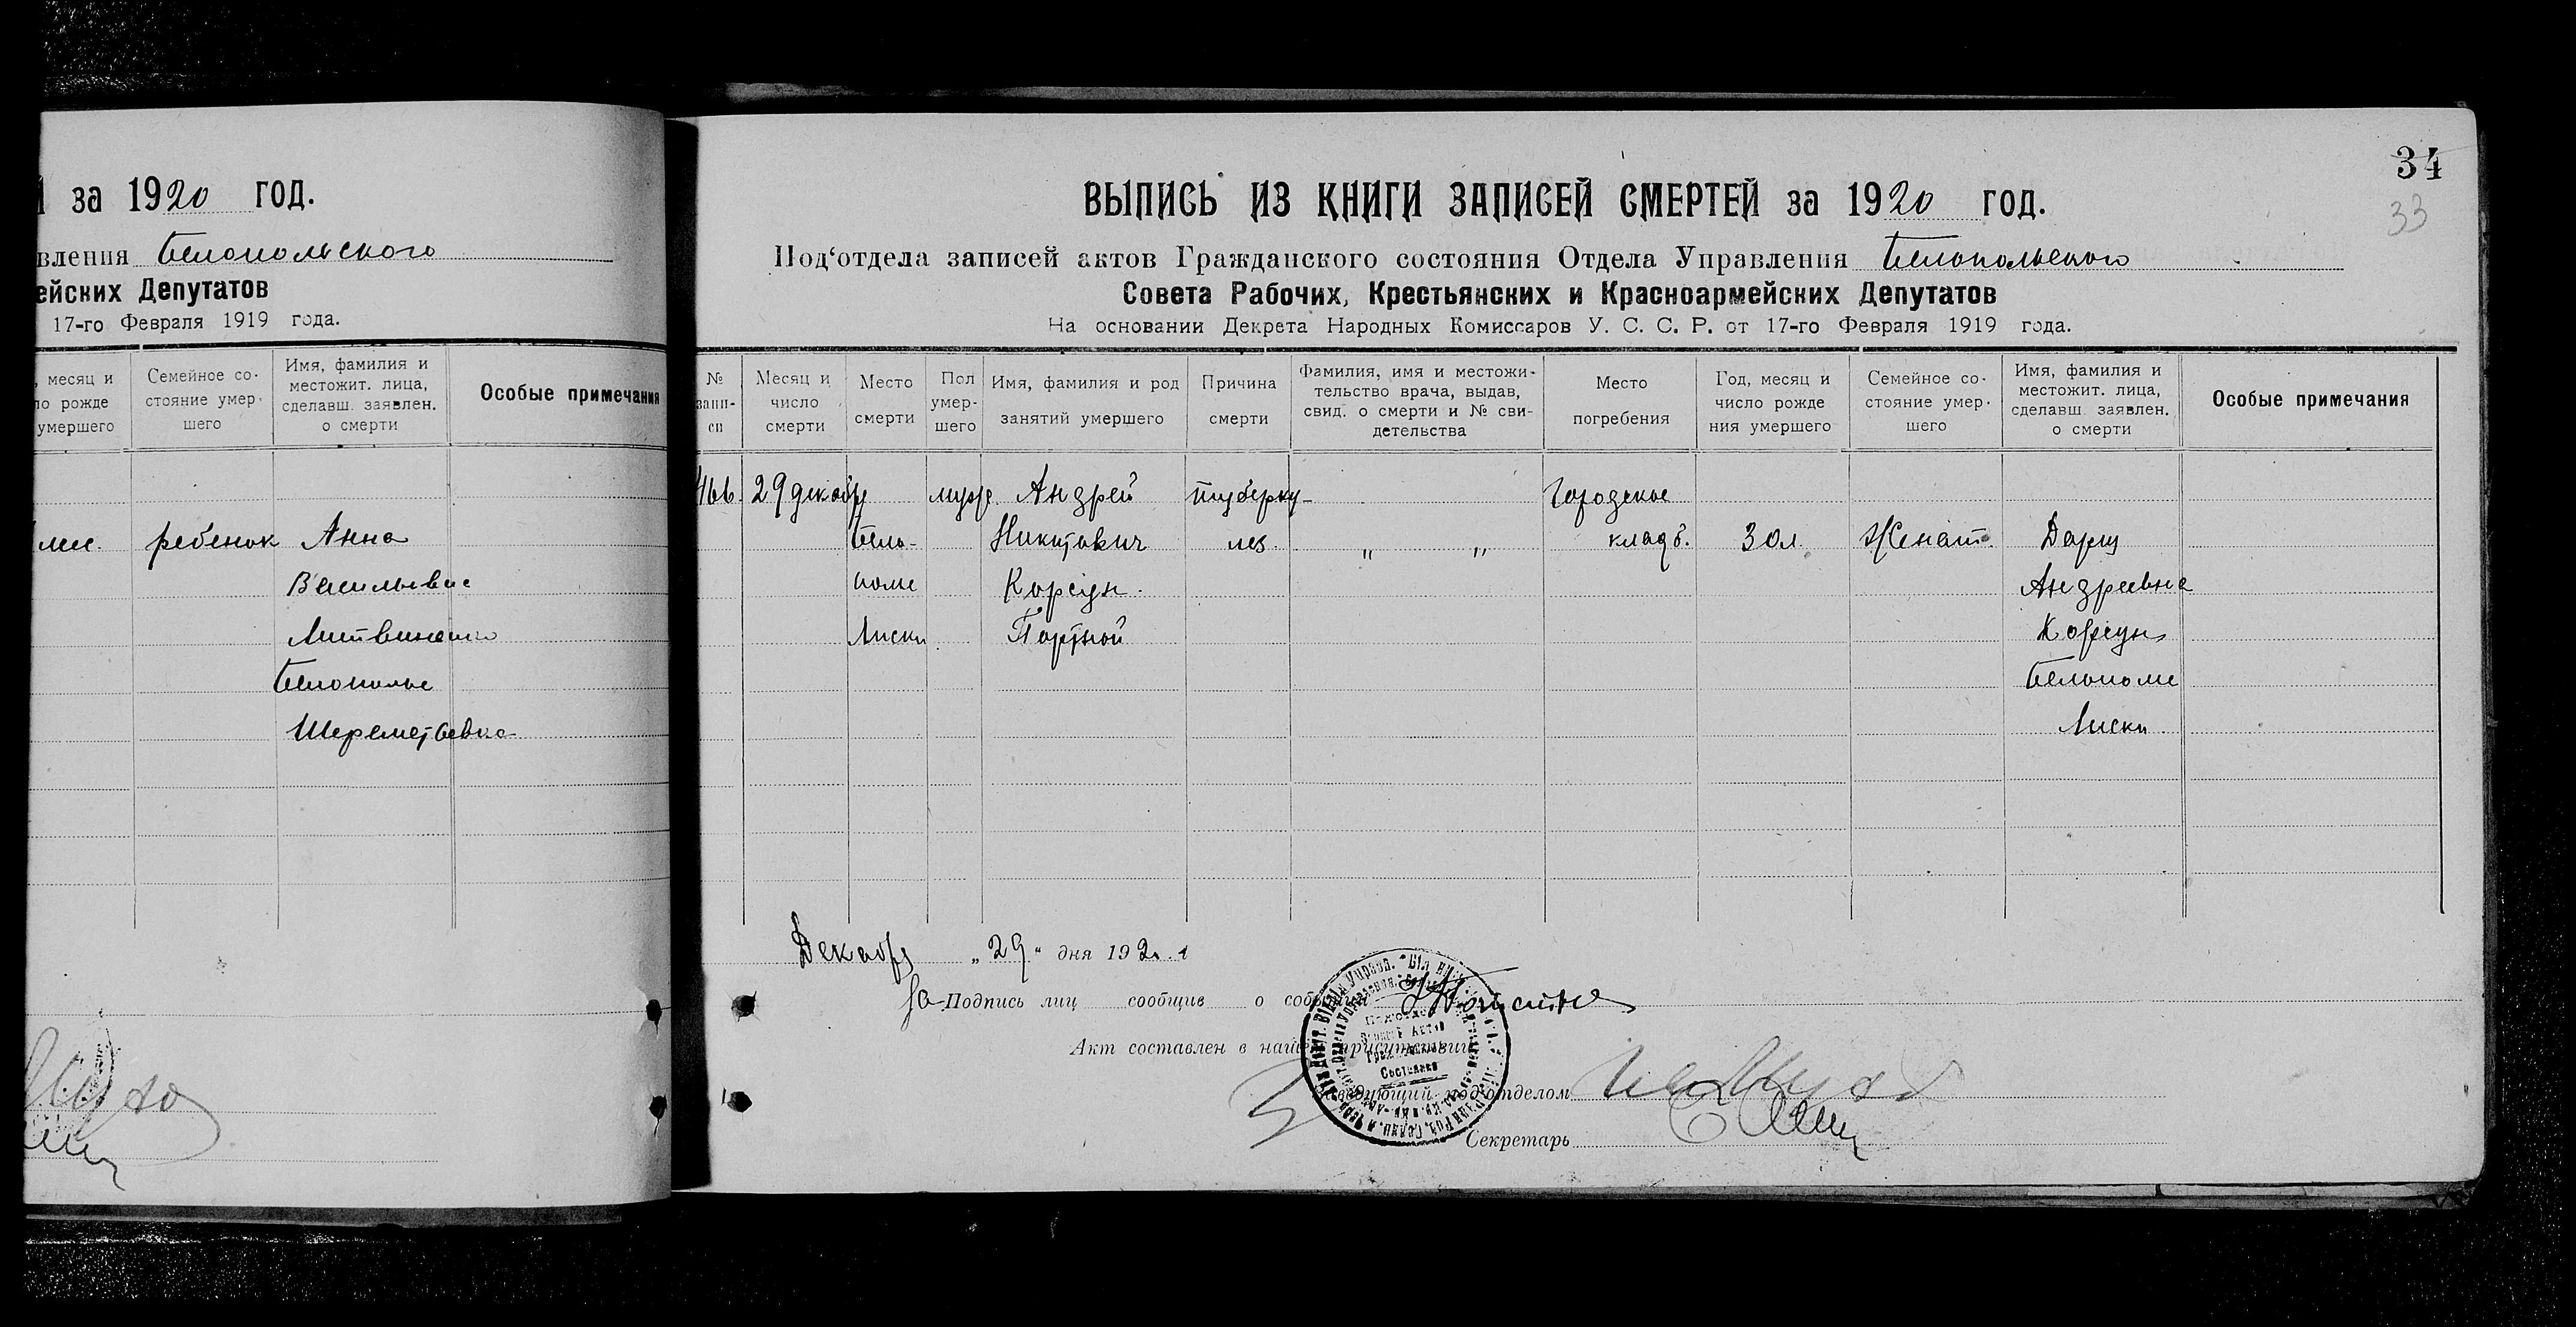 за 1920 год.
вления Белопольского
ейских Депутатов
17-го Февраля 1919 года.
, месяц и
ло рожде
умершего
Семейное со-
стояние умер-
шего
Имя, фамилия и
местожит. лица,
сделавш. заявлен.
о смерти
Особые примечания
мес.
ребенок
Анна
Васильевне
Литвиненко
Белополье
Шереметьевка
34
33
ВЫПИСЬ ИЗ КНИГИ ЗАПИСЕЙ СМЕРТЕЙ за 1920 год.
Под‘отдела записей актов Гражданского состояния Отдела Управления Белопольского
Совета Рабочих, Крестьянских и Красноармейских Депутатов
На основании Декрета Народных Комиссаров У. С. С. Р. от 17-го Февраля 1919 года.
№
запи-
си
Месяц и
число
смерти
Место
смерти
Пол
умер-
шего
Имя, фамилия и род
занятий умершего
Причина
смерти
Фамилия, имя и местожи-
тельство врача, выдав,
свид. о смерти и № сви-
детельства
Место
погребения
Год, месяц и
число рожде
ния умершего
Семейное со-
стояние умер-
шего
Имя, фамилия и
местожит. лица,
сделавш. заявлен.
о смерти
Особые примечания
466.
29 декабр
Бело-
поле
Лиски
муж
Андрей
Никитович
Корсун.
Портной
туберку-
лез.
„ „
Городское
кладб.
30 л.
Женат.
Даря
Андреевна
Корсун
Белополе
Лиски
Декабр „29“ дня 1920 г
За Подпись лиц сообщив о собы
Акт составлен в наше присутствии
Заведующий под‘отделом
Секретарь